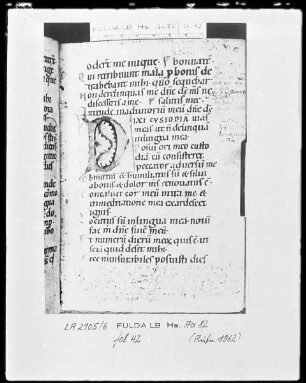 FULDA LB Hs. Aa 82 fol. 42
odert me inique. bonitate
ui retribuunt mala pro bonis de
trahebant mihi quo sequebar
on derelinquas me dne ds ms ne
discesseris a me. salutis mee
ntende in adiutorium meum dne ds
DIXI CUSTODIA uias
meas ut n delinqua
in lingua mea
osui ori meo custo
dia cu consisteret
peccator aduersu me
bmutui et humiliatus su et silui
a bonis et dolor ms renouatus e
oncaluit cor meu intra me et
in meditatione mea exardescet
ignis
ocutus su in lingua mea notu
fac m dne fine meu
t numeru dieru meoru quis e ut
scia quid desit mihi
cce mensurabiles posuisti dies
LA 2105/6 FULDA LB Hs. Aa 82
fol 42 (Aufn. 1962)